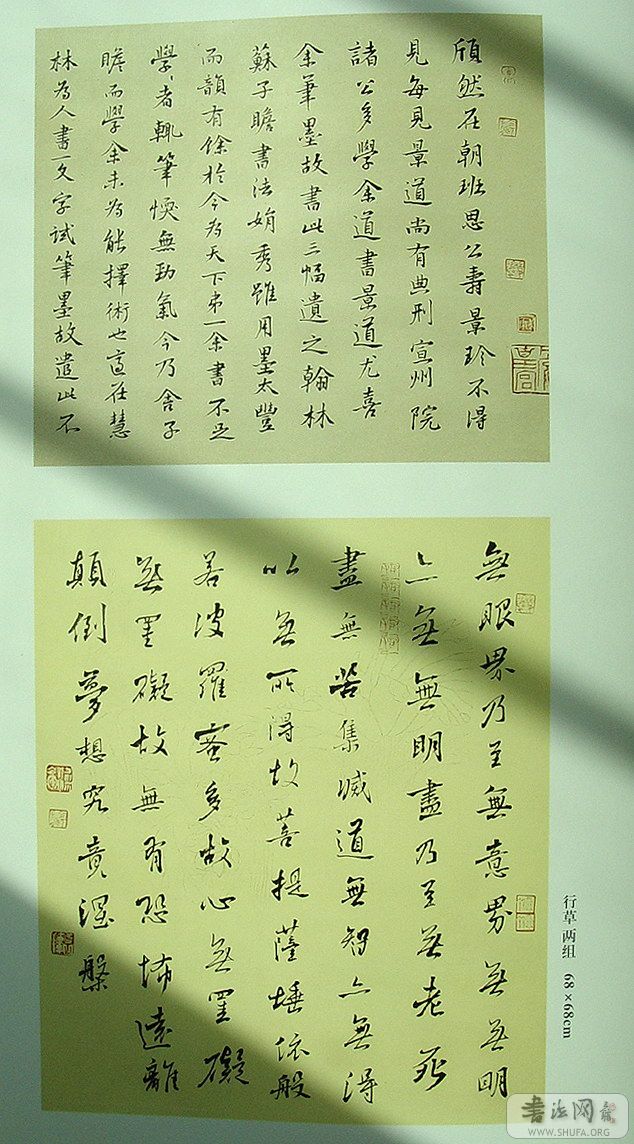 頎然在朝班思公壽景珍不得
見每見景道尚有典刑宣州院
諸公多學余道書景道尤喜
余筆墨故書此三幅遺之翰林
蘇子瞻書法娟秀雖用墨太豐
而韻有餘於今為天下第一余書不足
學學者輒筆愞無勁氣今乃舍子
瞻而學余未為能擇術也適在慧
林為人書一文字試筆墨故遣此不
無眼界乃至無意界無無明
亦無無明盡乃至無老死
盡無苦集滅道無智亦無得
以無所得故菩提薩埵依般
若波羅蜜多故心無罣礙
無罣礙故無有恐怖遠離
顛倒夢想究竟涅槃
行草 两组 68×68cm
书法网
WWW.SHUFA.ORG